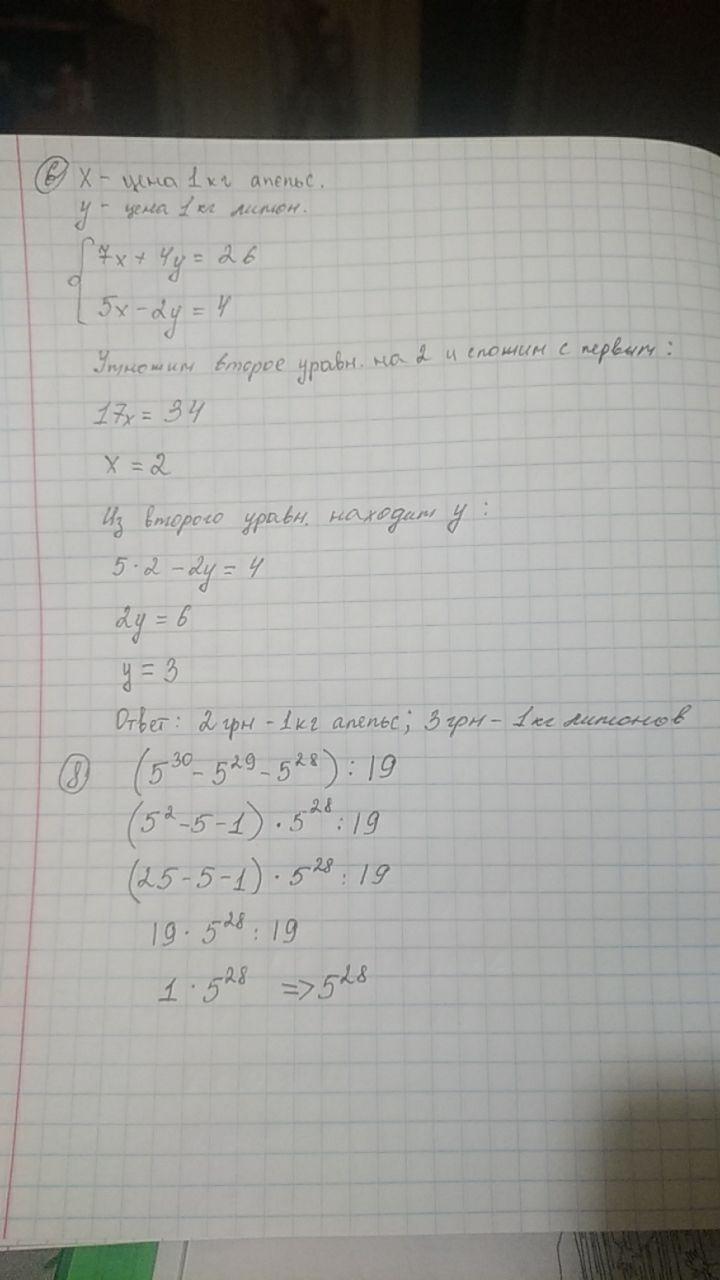 6) x - цена 1 кг апельс.
y - цена 1 кг лимон.
7x + 4y = 26
5x - 2y = 4
Умножим второе уравн. на 2 и сложим с первым:
17x = 34
x = 2
Из второго уравн. находим y:
5 · 2 - 2y = 4
2y = 6
y = 3
Ответ: 2 грн - 1 кг апельс; 3 грн - 1 кг лимонов
8) (5³⁰ - 5²⁹ - 5²⁸) : 19
(5² - 5 - 1) · 5²⁸ : 19
(25 - 5 - 1) · 5²⁸ : 19
19 · 5²⁸ : 19
1 · 5²⁸ => 5²⁸